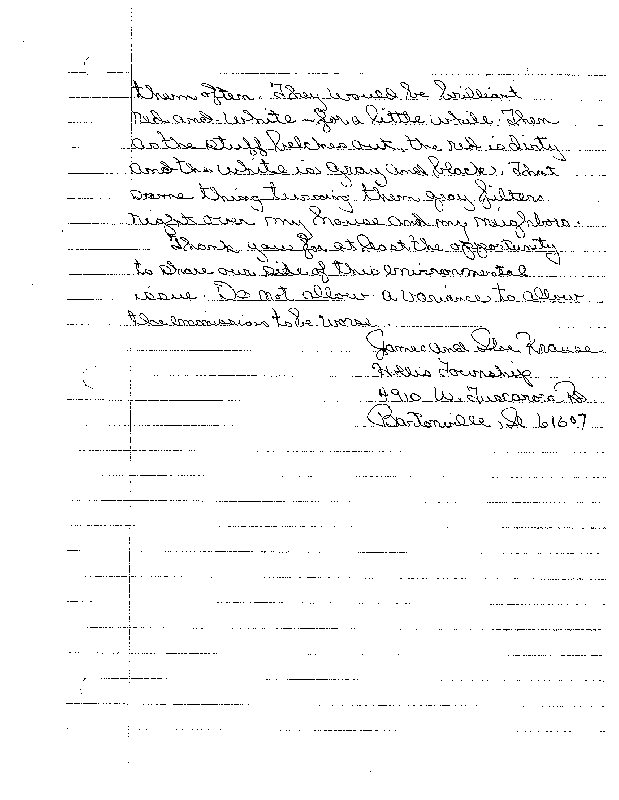 them often. They would be brilliant
red and white - for a little while. Then
as the stuff belches out, the red is dirty
and the white is gray and black. That
same thing turning them gray filters
right over my house and my neighbors.
Thank you for at least the opportunity
to share our side of this environmental
issue. Do not allow a variance to allow
the emissions to be worse.
James and Sloe Krause
Hollis Township
4910 W. Tuscarora Rd
Bartonville, Il 61607